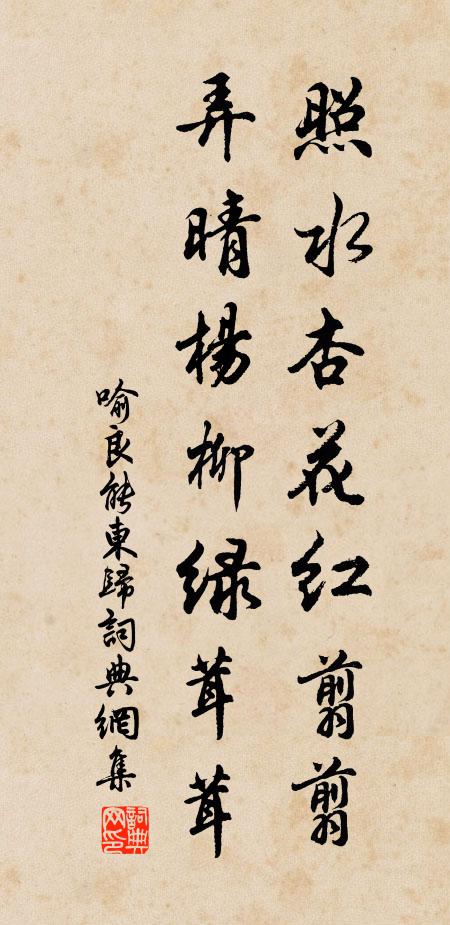 照水杏花红翦翦
弄晴楊柳绿茸茸
喻良能東歸詞典網集
詞典网印